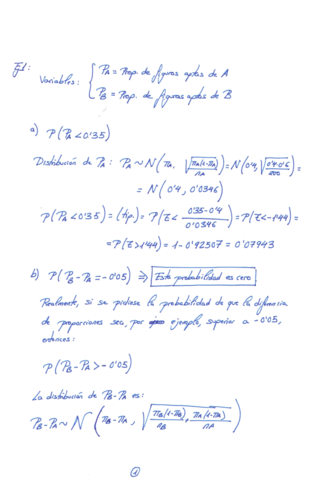 Ej1:
Variables: { PA = Prop. de figuras aptas de A
PB = Prop. de figuras aptas de B
a) P(PA < 0'35)
Distribución de PA: PA ~ N(πA, √(πA(1-πA)/nA)) = N(0'4, √(0'4·0'6/200)) =
= N(0'4, 0'0346)
P(PA < 0'35) = (tip.) = P(z < (0'35-0'4)/0'0346) = P(z < -1'44) =
= P(z > 1'44) = 1 - 0'92507 = 0'07493
b) P(PB - PA = -0'05) ⇒ Esta probabilidad es cero
Realmente, si se pidiese la probabilidad de que la diferencia
de proporciones sea, por ejemplo, superior a -0'05,
entonces:
P(PB - PA > -0'05)
La distribución de PB-PA es:
PB-PA ~ N(πB-πA, √(πB(1-πB)/nB + πA(1-πA)/nA))
1